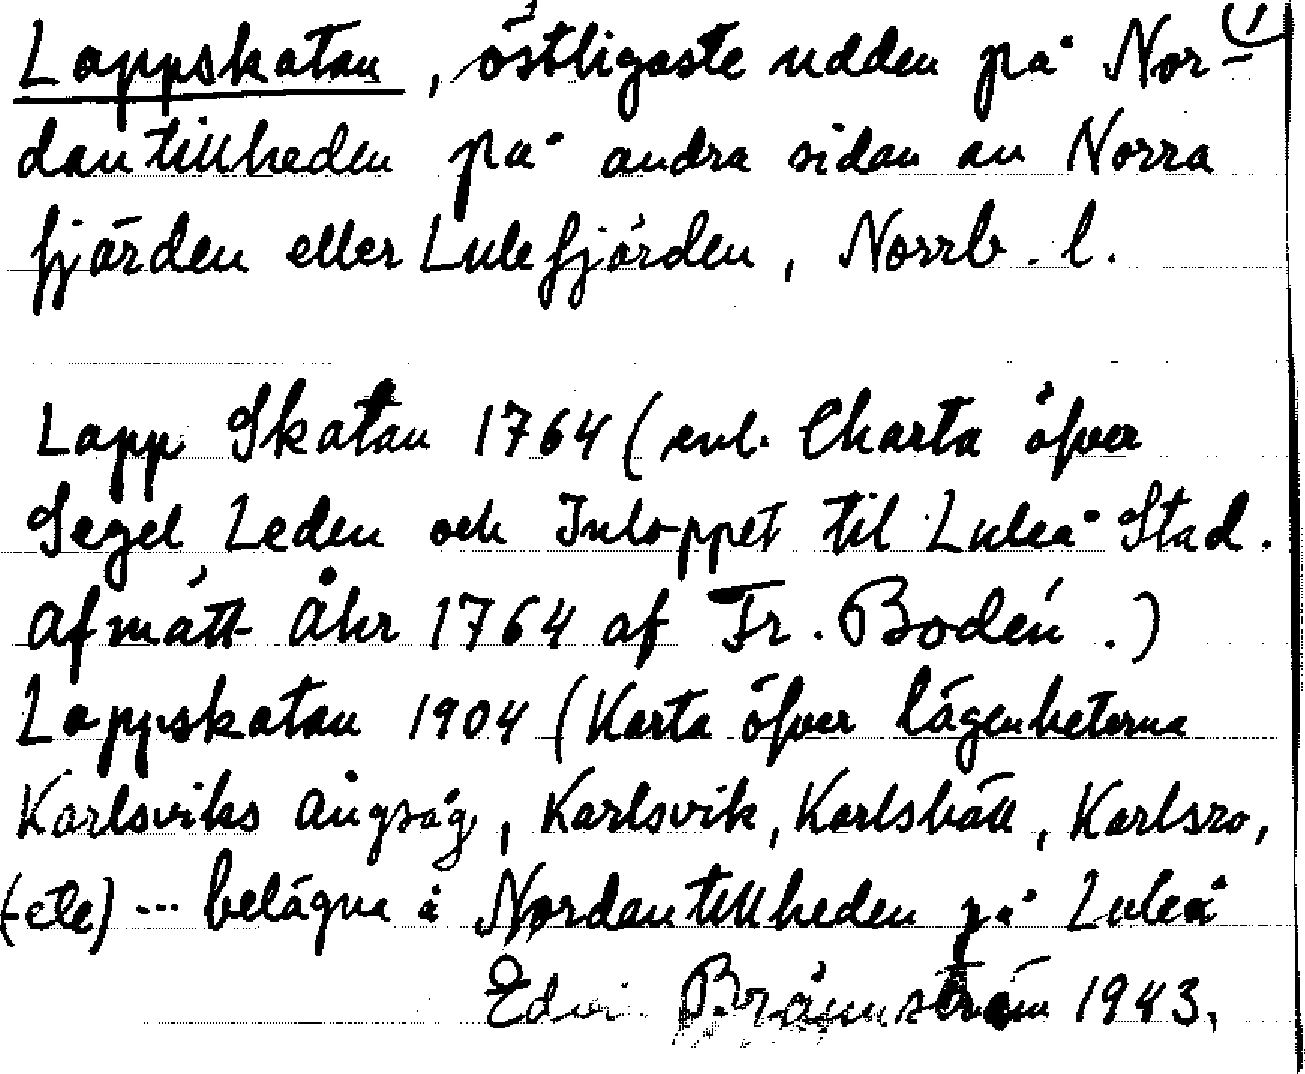 1)
Lappskatan, östligaste udden på Nor-
dantillheden på andra sidan av Norra
fjärden eller Lulefjärden, Norrb. l.
Lapp Skatan 1764 (enl. Charta öfver
Segel Leden och Inloppet til Luleå Stad.
Afmätt Åhr 1764 af Fr. Bodén.)
Lappskatan 1904 (Karta öfver lägenheterna
Karlsviks ångsåg, Karlsvik, Karlshäll, Karlsro,
(etc) ... belägna å Nordantillheden på Luleå
Edvin Brännström 1943.